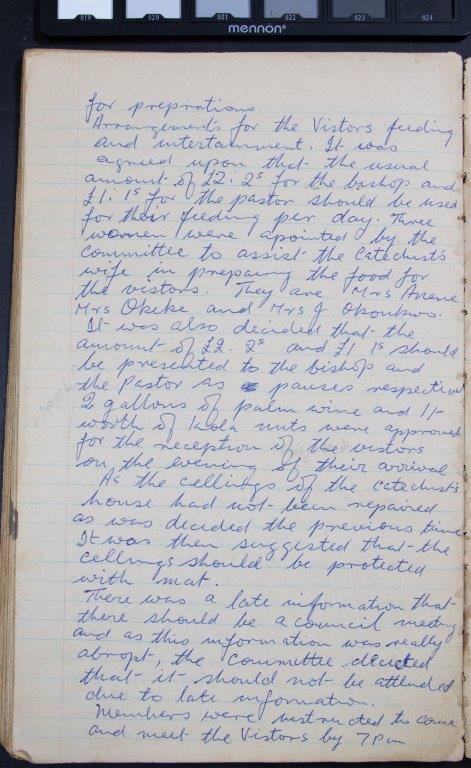 019 020 021 022 023 024
mennon
for preprations
Arrangements for the Vistors feeding
and intertainment. It was
agreed upon that the usual
amount of £2. 2s for the bishop and
£1. 1s for the pastor should be used
for their feeding per day. Three
women were apointed by the
committee to assist the Catechist's
wife in prepairing the food for
the vistors. They are Mrs Anene
Mrs Okeke and Mrs J Okonkwo.
It was also decided that the
amount of £2. 2s and £1 1s should
be presented to the bishop and
the Pastor as pauses respective
2 gallons of palm wine and 1/-
worth of kola nuts were approved
for the reception of the vistors
on the evening of their arrival
As the cellings of the catechist's
house had not been repaired
as was decided the previous time
It was then suggested that the
cellings should be protected
with mat.
There was a late information that
there should be a council meeting
and as this information was really
abropt, the Committee decided
that it should not be attended
due to late information.
Members were instructed to come
and meet the Vistors by 7pm